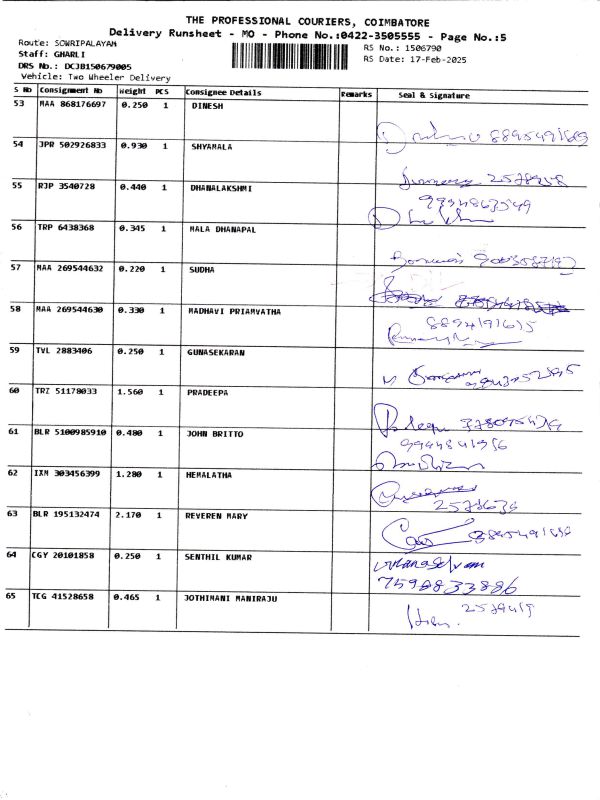 THE PROFESSIONAL COURIERS, COIMBATORE
Delivery Runsheet - MO - Phone No.:0422-3505555 - Page No.:5
Route: SOWRIPALAYAM
RS No.: 1506790
Staff: GHARLI
RS Date: 17-Feb-2025
DRS No.: DCJB150679005
Vehicle: Two Wheeler Delivery
S No Consignment No Weight PCS Consignee Details Remarks Seal & Signature
53 MAA 868176697 0.250 1 DINESH
54 JPR 502926833 0.930 1 SHYAMALA
55 RJP 3540728 0.440 1 DHANALAKSHMI
56 TRP 6438368 0.345 1 MALA DHANAPAL
57 MAA 269544632 0.220 1 SUDHA
58 MAA 269544630 0.330 1 MADHAVI PRIAMVATHA
59 TVL 2883406 0.250 1 GUNASEKARAN
60 TRZ 51178033 1.560 1 PRADEEPA
61 BLR 5100985910 0.480 1 JOHN BRITTO
62 IXM 303456399 1.280 1 HEMALATHA
2578636
63 BLR 195132474 2.170 1 REVEREN MARY
64 CGY 20101858 0.250 1 SENTHIL KUMAR
7598833886
65 TCG 41528658 0.465 1 JOTHIMANI MANIRAJU
2579419